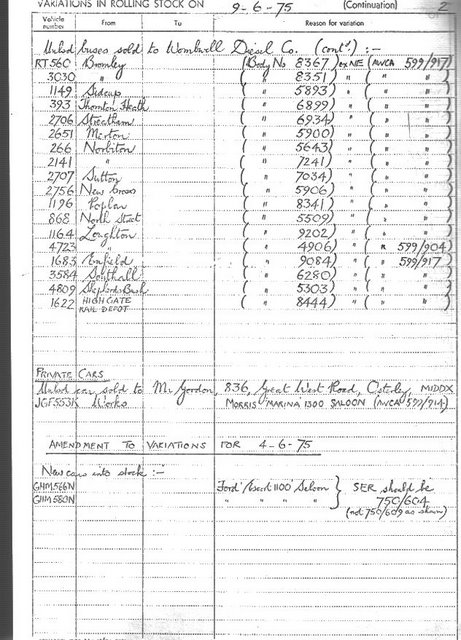 VARIATIONS IN ROLLING STOCK ON 9-6-75 (Continuation) 2
Vehicle number From To Reason for variation
Unlsd buses sold to Wombwell Diesel Co. (contd) :-
RT560 Bromley (Body No 8367) ex N/E (AVCA 599/917)
3030 " ( " 8351) " ( " " )
1149 Sidcup ( " 5893) " ( " " )
393 Thornton Heath ( " 6899) " ( " " )
2706 Streatham ( " 6934) " ( " " )
2651 Merton ( " 5900) " ( " " )
266 Norbiton ( " 5643) " ( " " )
2141 " ( " 7241) " ( " " )
2707 Sutton ( " 7034) " ( " " )
2756 New Cross ( " 5906) " ( " " )
1196 Poplar ( " 8341) " ( " " )
868 North Street ( " 5509) " ( " " )
1164 Loughton ( " 9202) " ( " " )
4723 " ( " 4906) " ( " 599/904)
1683 Enfield ( " 9084) " ( " 599/917)
3584 Southall ( " 6280) " ( " " )
4809 Shepherds Bush ( " 5303) " ( " " )
1622 HIGHGATE RAIL DEPOT ( " 8444) " ( " " )
PRIVATE CARS
Unlsd car sold to Mr Gordon, 836, Great West Road, Osterley, MIDDX
JGF553K Works MORRIS MARINA 1300 SALOON (AVCA 599/914)
AMENDMENT TO VARIATIONS FOR 4-6-75
New cars into stock :-
GHM566N Ford 'Escort 1100' Saloon } SER should be
GHM580N " " " " } 750/604
(not 750/609 as shown)